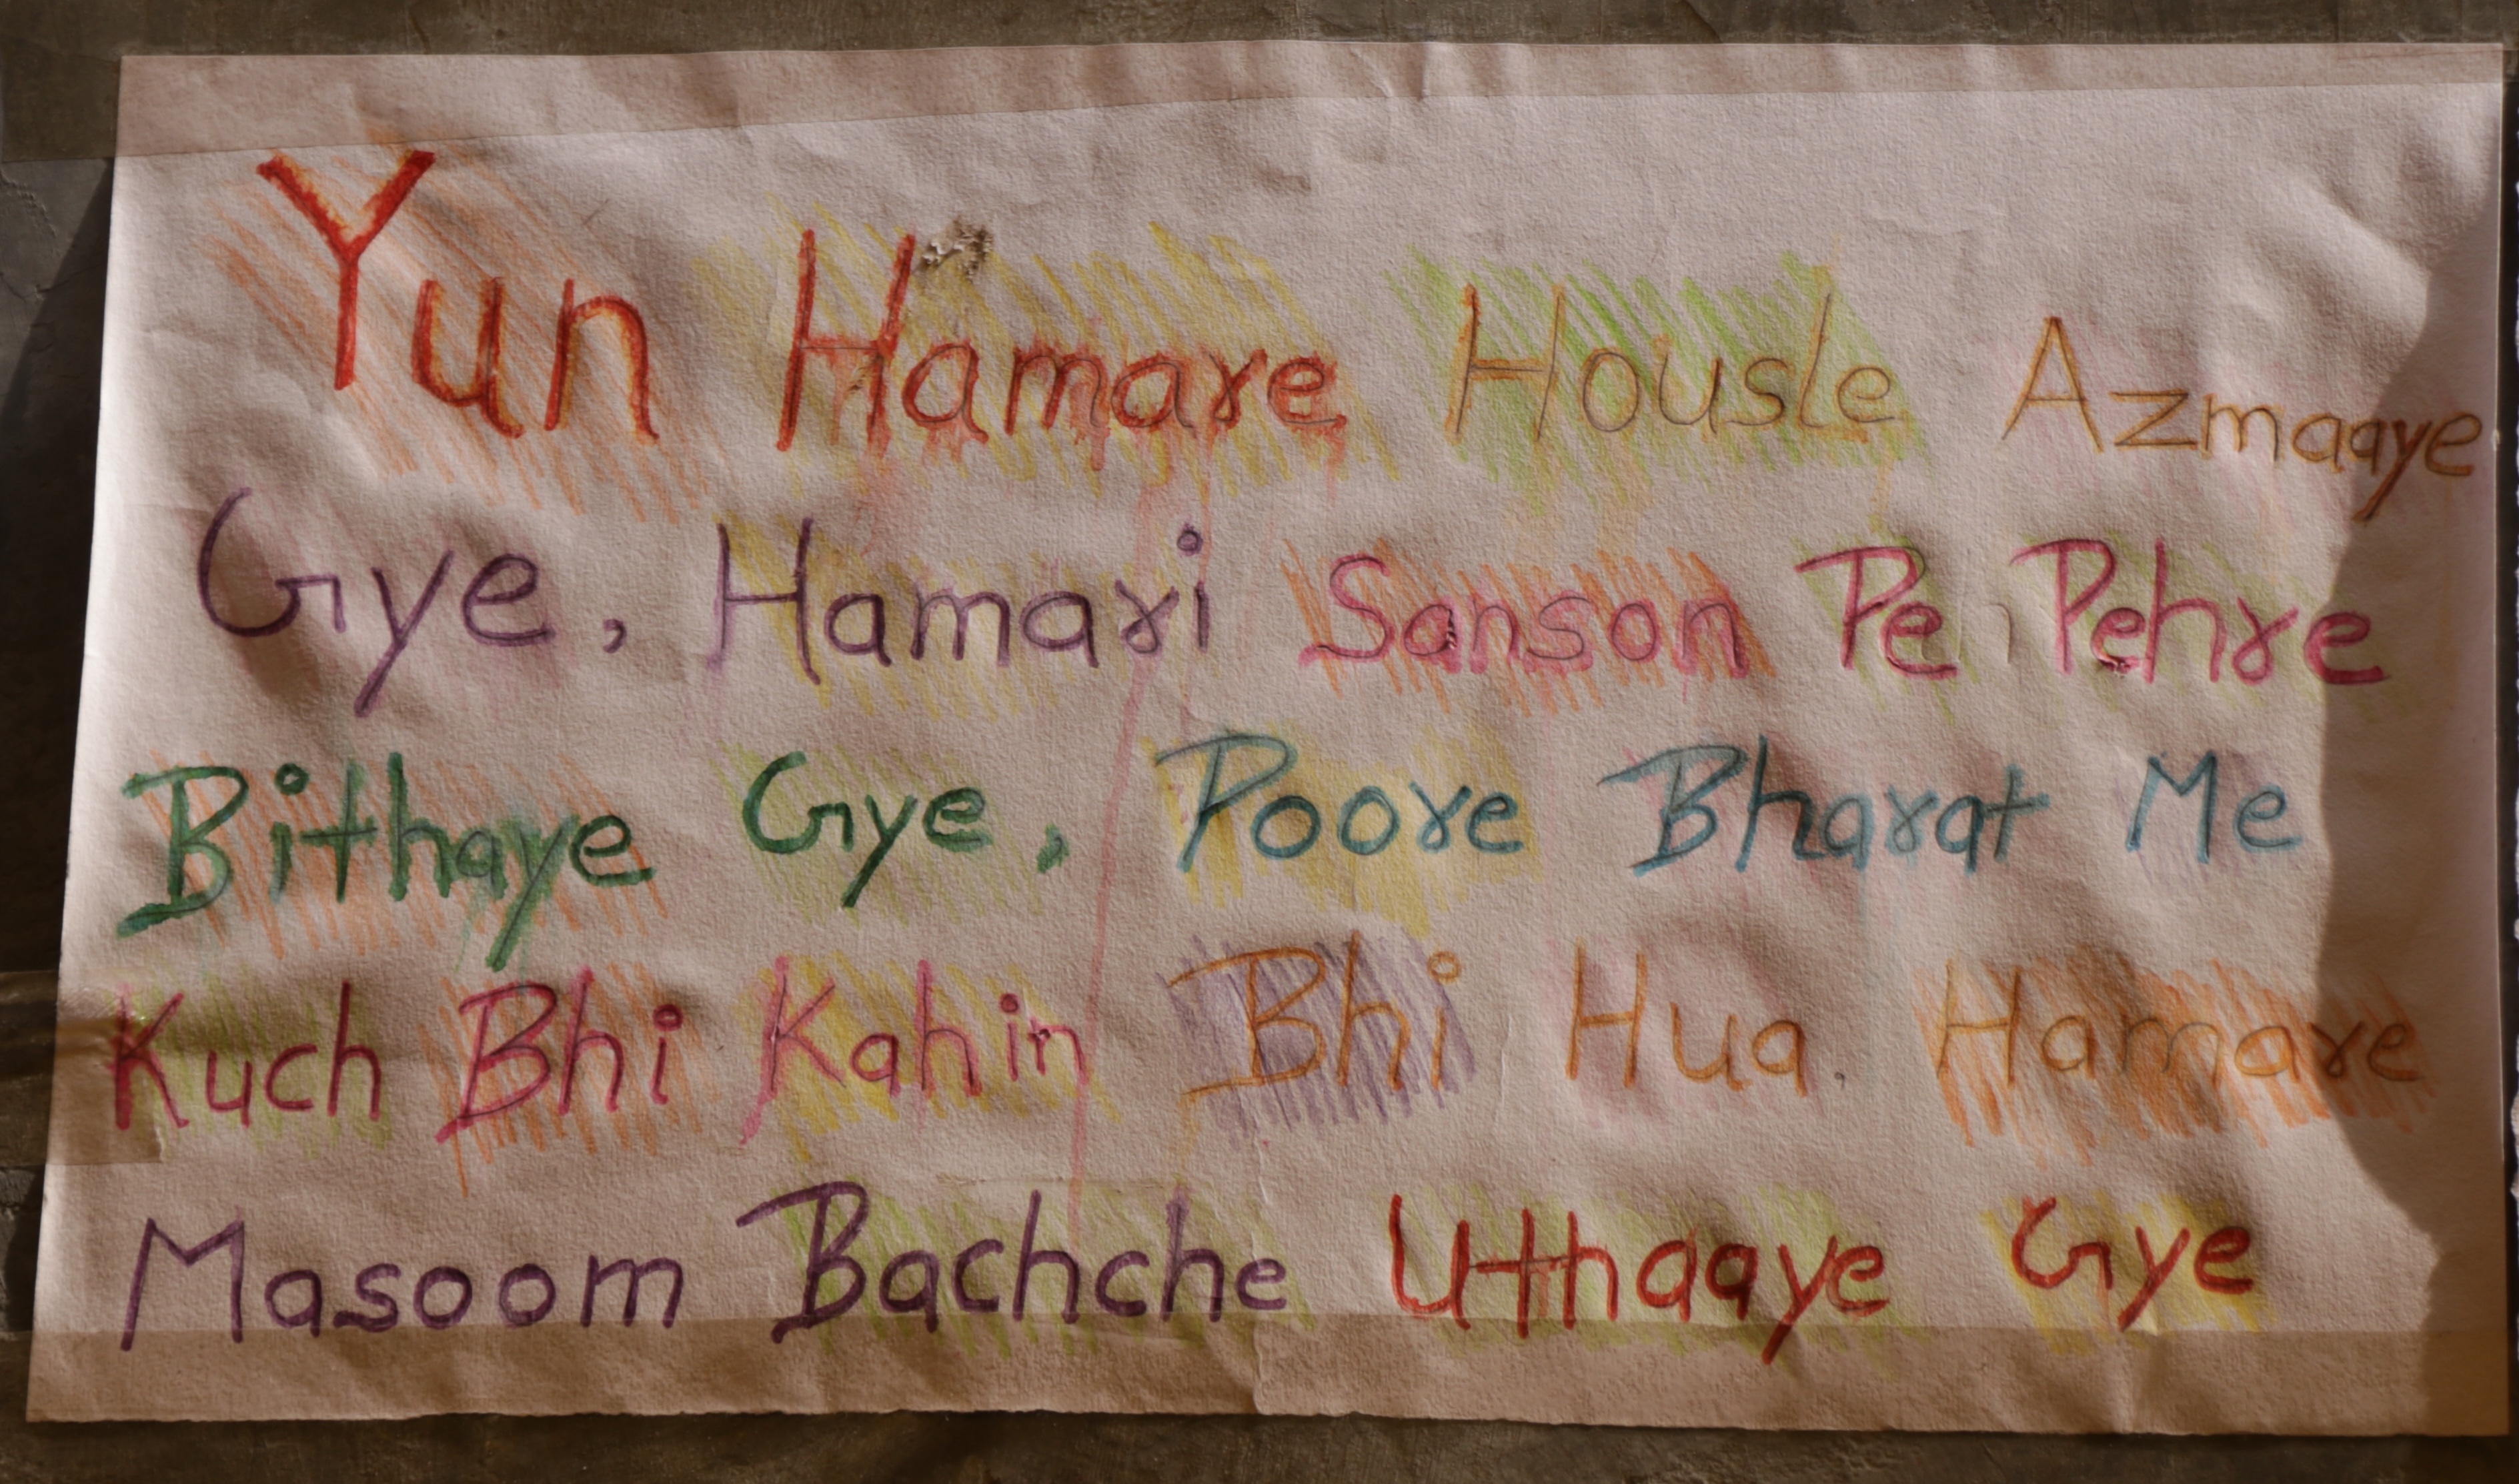 Yun Hamare Housle Azmaaye
Gye, Hamari Sanson Pe Pehre
Bithaye Gye, Poore Bharat Me
Kuch Bhi Kahin Bhi Hua, Hamare
Masoom Bachche Uthaaye Gye